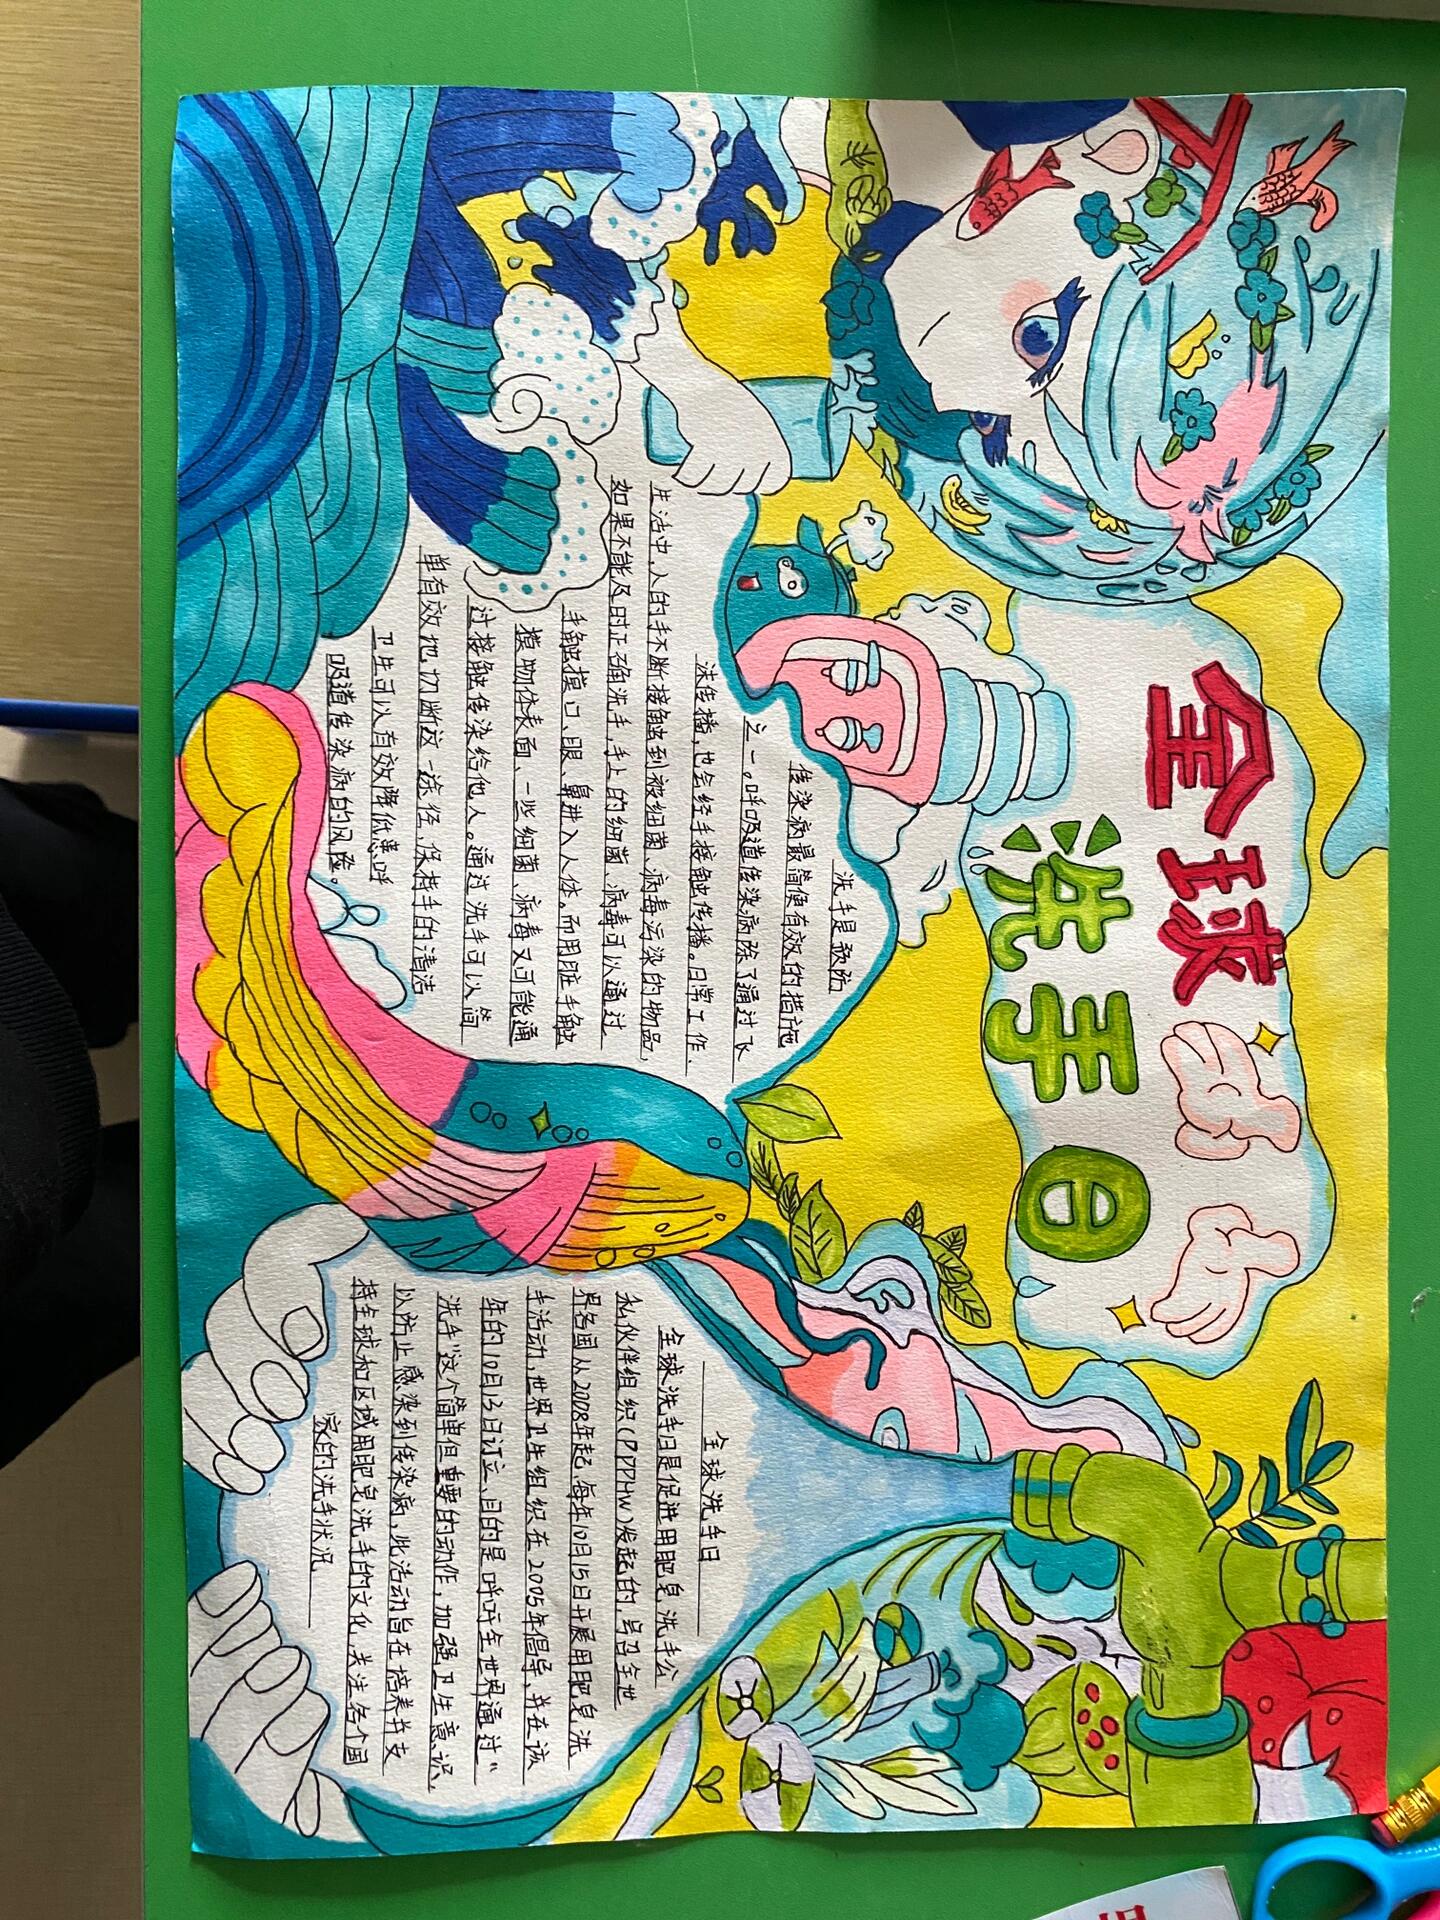 全球
洗手日
洗手是预防
传染病最简便有效的措施
之一。呼吸道传染病除了通过飞
沫传播，也会经手接触传播。日常工作、
生活中，人的手不断接触到被细菌、病毒污染的物品，
如果不能及时正确洗手，手上的细菌、病毒可以通过
手触摸口、眼、鼻进入人体。而用脏手触
摸物体表面、一些细菌、病毒又可能通
过接触传染给他人。通过洗手可以简
单有效地切断这一途径，保持手的清洁
卫生可以有效降低患呼
吸道传染病的风险。
全球洗手日
全球洗手日是促进用肥皂洗手公
私伙伴组织(PPPHW)发起的，号召全世
界各国从2008年起，每年10月15日开展用肥皂洗
手活动，世界卫生组织在2005年倡导，并在该
年的10月13日订立、目的是呼吁全世界通过“
洗手”这个简单但重要的动作，加强卫生意识，
以防止感染到传染病，此活动旨在培养并支
持全球和区域用肥皂洗手的文化，关注各个国
家的洗手状况